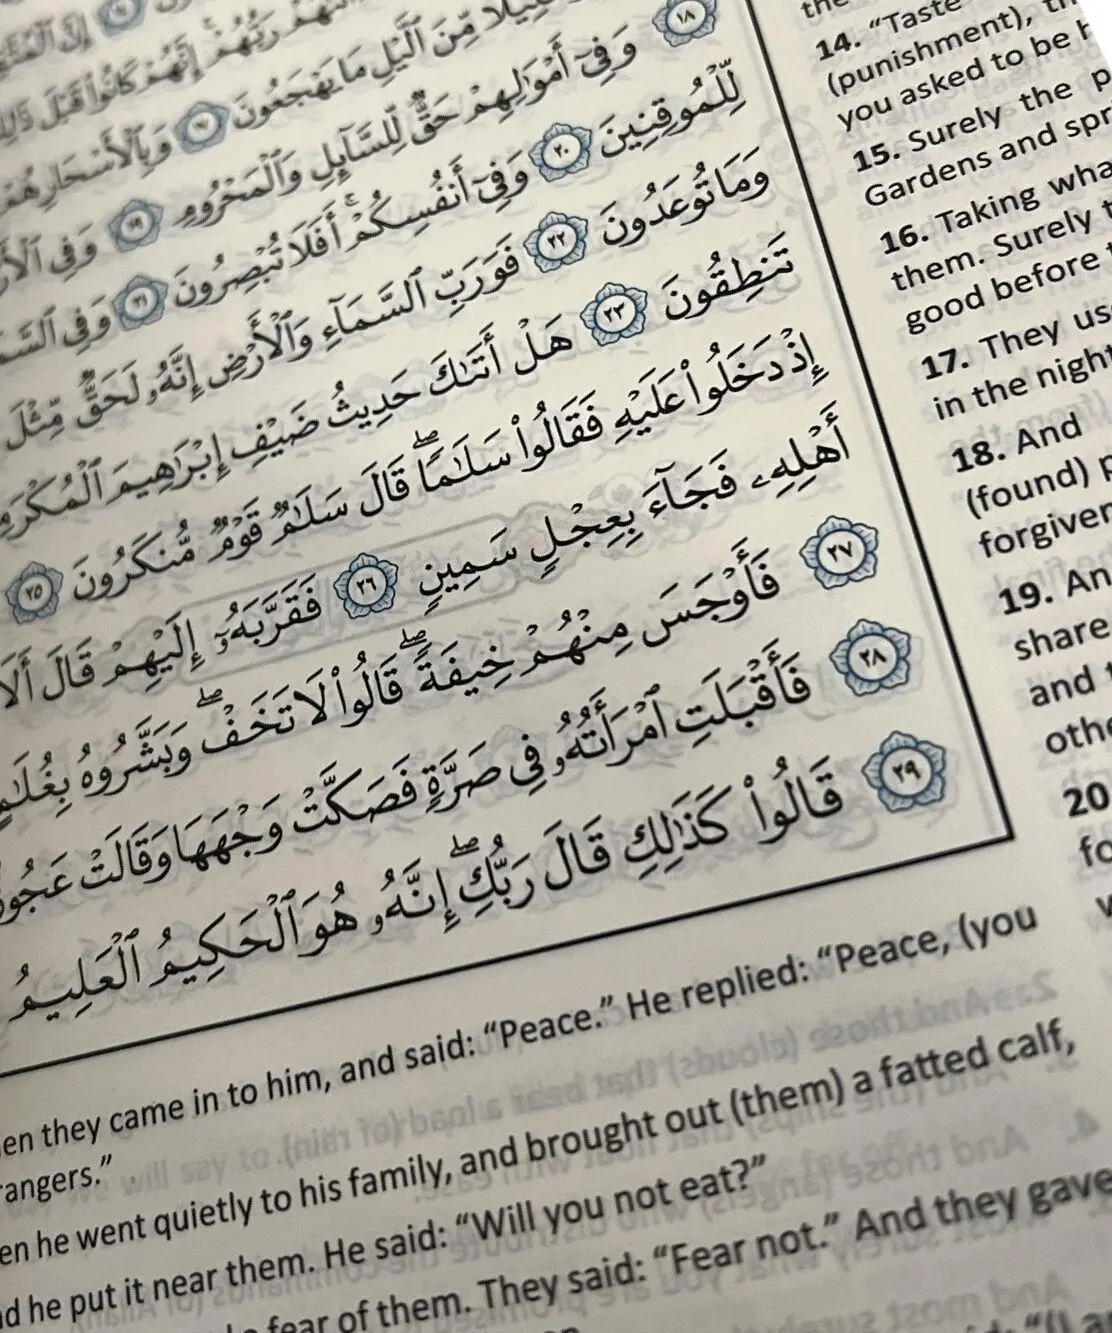 مِّنَ ٱلَّيْلِ مَا يَهْجَعُونَ ١٧ وَبِٱلْأَسْحَارِ هُمْ
١٨ وَفِىٓ أَمْوَٰلِهِمْ حَقٌّ لِّلسَّآئِلِ وَٱلْمَحْرُومِ ١٩ وَفِى
لِّلْمُوقِنِينَ ٢٠ وَفِىٓ أَنفُسِكُمْ ۚ أَفَلَا تُبْصِرُونَ ٢١ وَفِى
وَمَا تُوعَدُونَ ٢٢ فَوَرَبِّ ٱلسَّمَآءِ وَٱلْأَرْضِ إِنَّهُۥ لَحَقٌّ مِّثْلَ
تَنطِقُونَ ٢٣ هَلْ أَتَىٰكَ حَدِيثُ ضَيْفِ إِبْرَٰهِيمَ
إِذْ دَخَلُوا۟ عَلَيْهِ فَقَالُوا۟ سَلَٰمًا ۖ قَالَ سَلَٰمٌ قَوْمٌ مُّنكَرُونَ ٢٥
أَهْلِهِۦ فَجَآءَ بِعِجْلٍ سَمِينٍ ٢٦ فَقَرَّبَهُۥٓ إِلَيْهِمْ قَالَ أَلَا
٢٧ فَأَوْجَسَ مِنْهُمْ خِيفَةً ۖ قَالُوا۟ لَا تَخَفْ ۖ وَبَشَّرُوهُ بِغُلَٰمٍ
٢٨ فَأَقْبَلَتِ ٱمْرَأَتُهُۥ فِى صَرَّةٍ فَصَكَّتْ وَجْهَهَا وَقَالَتْ
٢٩ قَالُوا۟ كَذَٰلِكِ قَالَ رَبُّكِ ۖ إِنَّهُۥ هُوَ ٱلْحَكِيمُ ٱلْعَلِيمُ
14. “Taste
(punishment),
you asked to be
15. Surely the
Gardens and
16. Taking
them. Surely
good before
17. They
in the night
18. And
(found)
19.
share
and
20
they came in to him, and said: “Peace.” He replied: “Peace, (you
he went quietly to his family, and brought out (them) a fatted calf,
he put it near them. He said: “Will you not eat?”
fear of them. They said: “Fear not.” And they gave